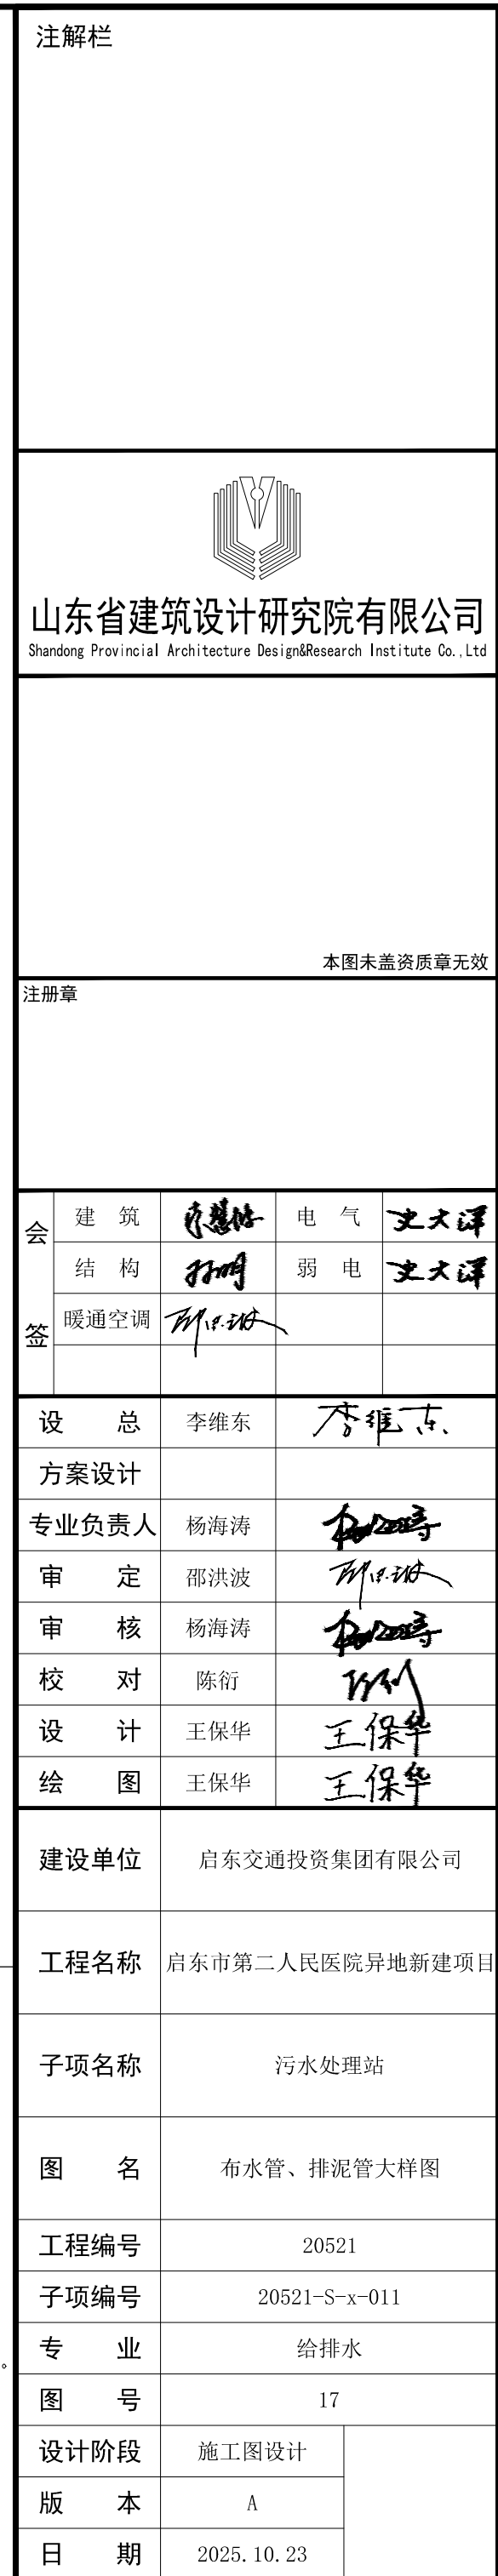 注解栏
山东省建筑设计研究院有限公司
Shandong Provincial Architecture Design&Research Institute Co.,Ltd
本图未盖资质章无效
注册章
会签
建 筑
电 气 史大泽
结 构 孙明
弱 电 史大泽
暖通空调 邵洪波
设 总 李维东 李维东
方案设计
专业负责人 杨海涛 杨海涛
审 定 邵洪波 邵洪波
审 核 杨海涛 杨海涛
校 对 陈衍 陈衍
设 计 王保华 王保华
绘 图 王保华 王保华
建设单位 启东交通投资集团有限公司
工程名称 启东市第二人民医院异地新建项目
子项名称 污水处理站
图 名 布水管、排泥管大样图
工程编号 20521
子项编号 20521-S-x-011
专 业 给排水
图 号 17
设计阶段 施工图设计
版 本 A
日 期 2025.10.23
。